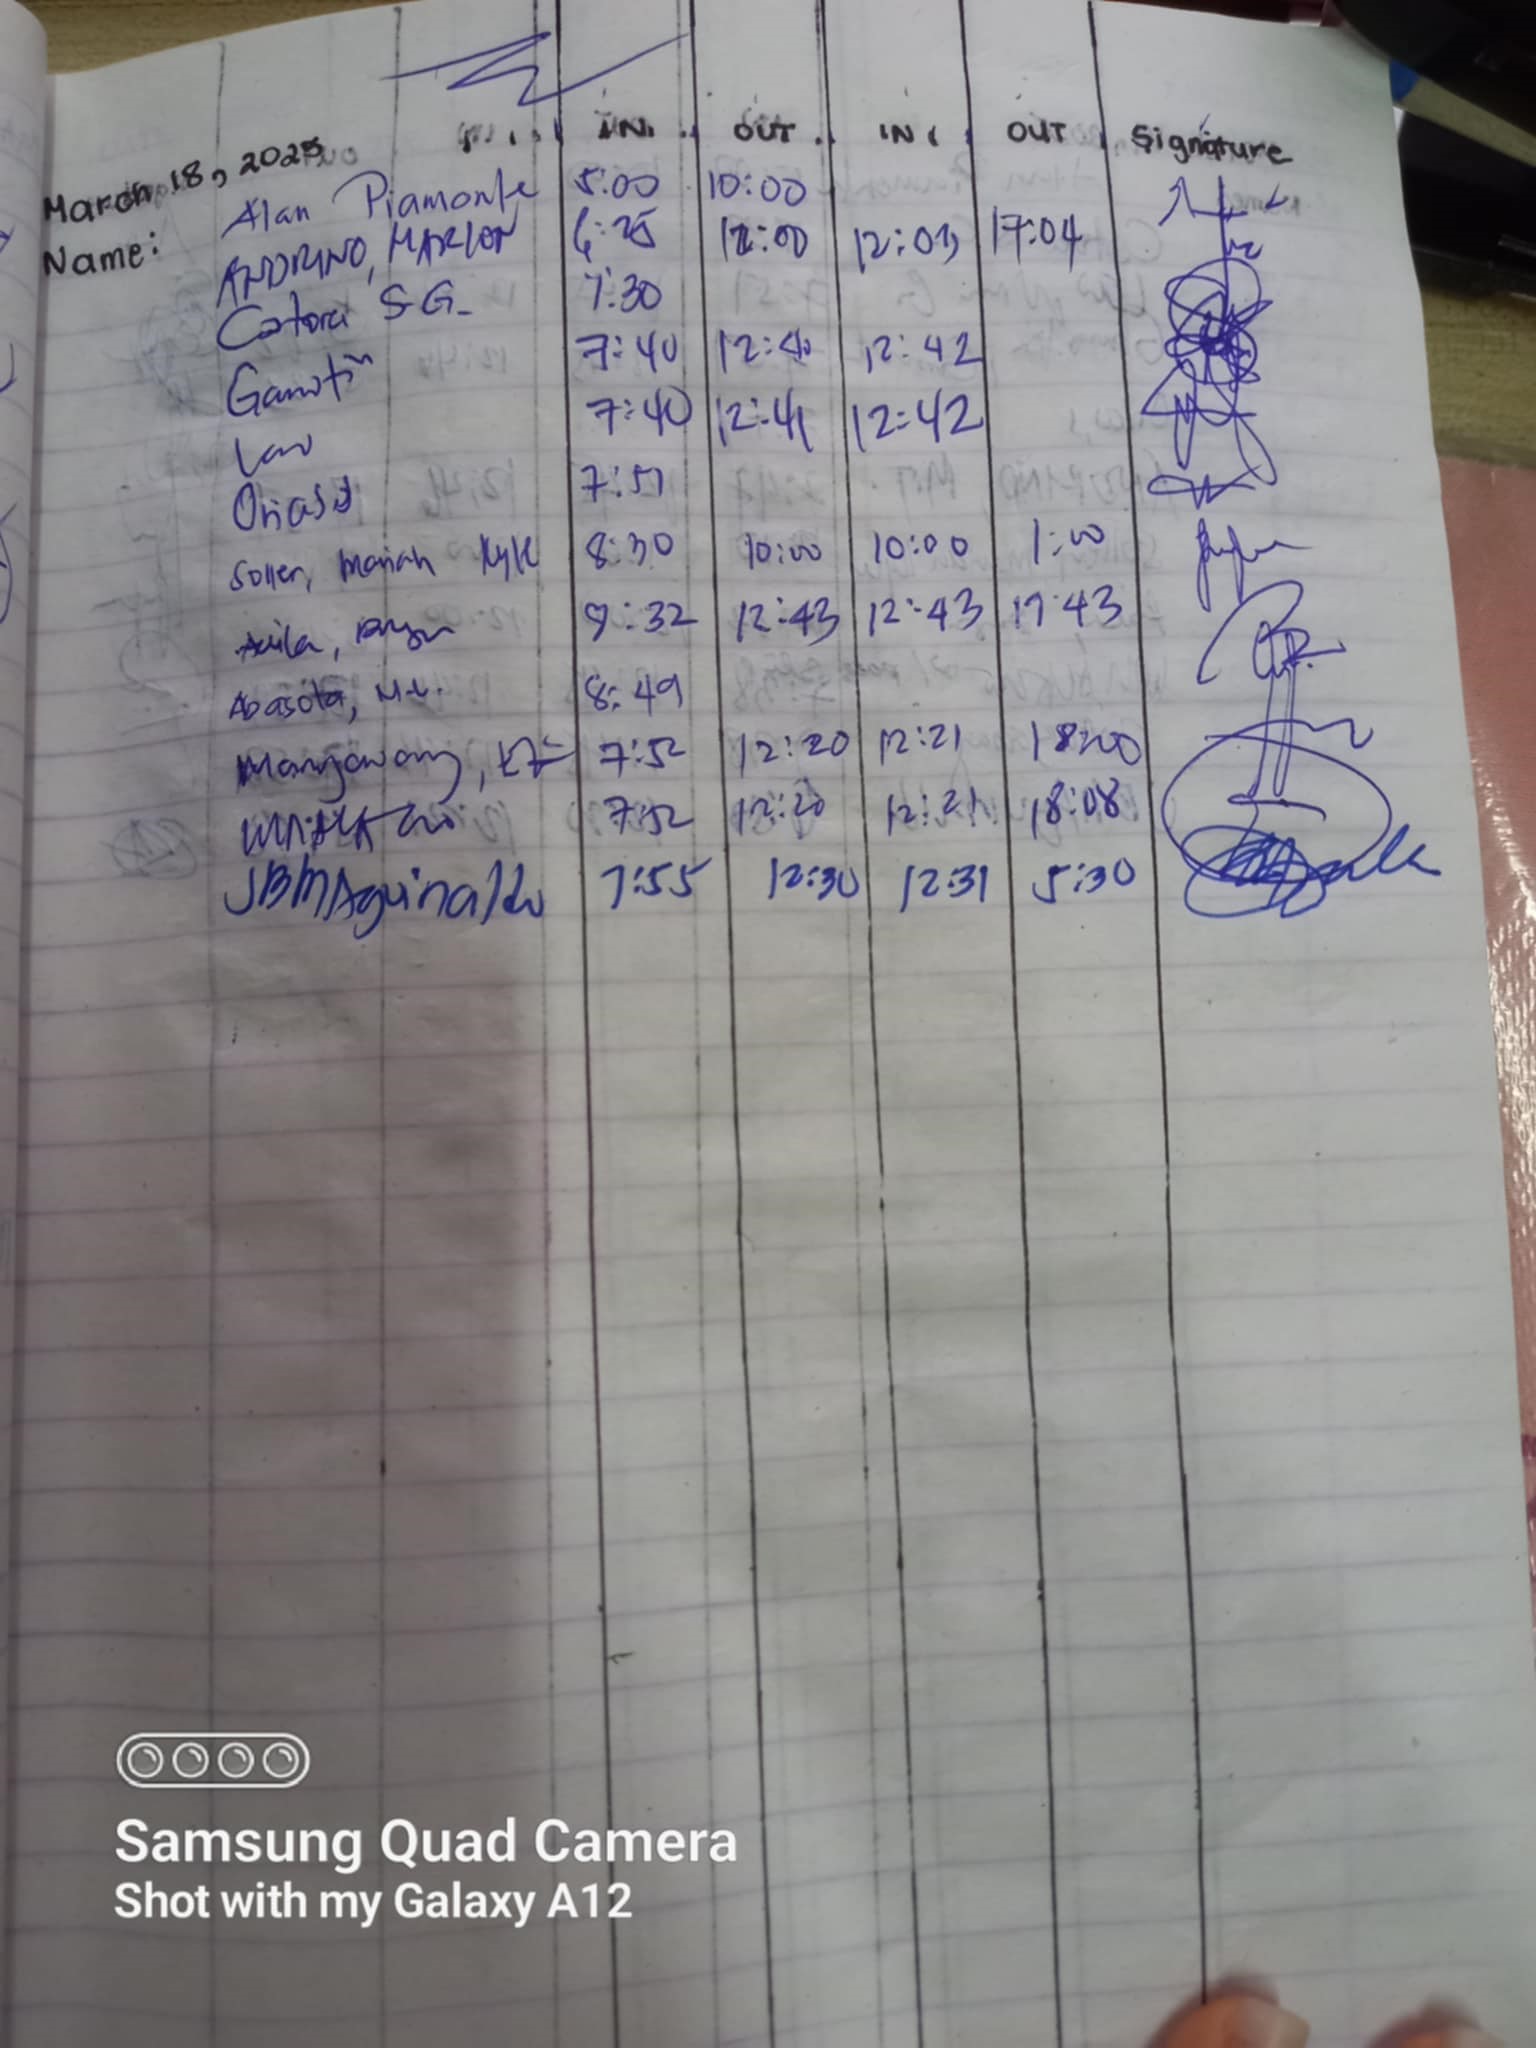 IN. OUT IN OUT Signature
March 18, 2025
Name:
Alan Piamonte 5:00 10:00
ANDRINO, MARLON 6:25 12:00 12:03 17:04
S.G. 7:30
7:40 12:40 12:42
7:40 12:41 12:42
7:51
Soller, Mariah Kyle 8:30 10:00 10:00 1:00
Avila, 9:32 12:43 12:43 17:43
Abasola, M.L. 8:49
7:52 12:20 12:21 18:00
7:52 12:20 12:21 18:08
JBMAguinaldo 7:55 12:30 12:31 5:30
Samsung Quad Camera
Shot with my Galaxy A12